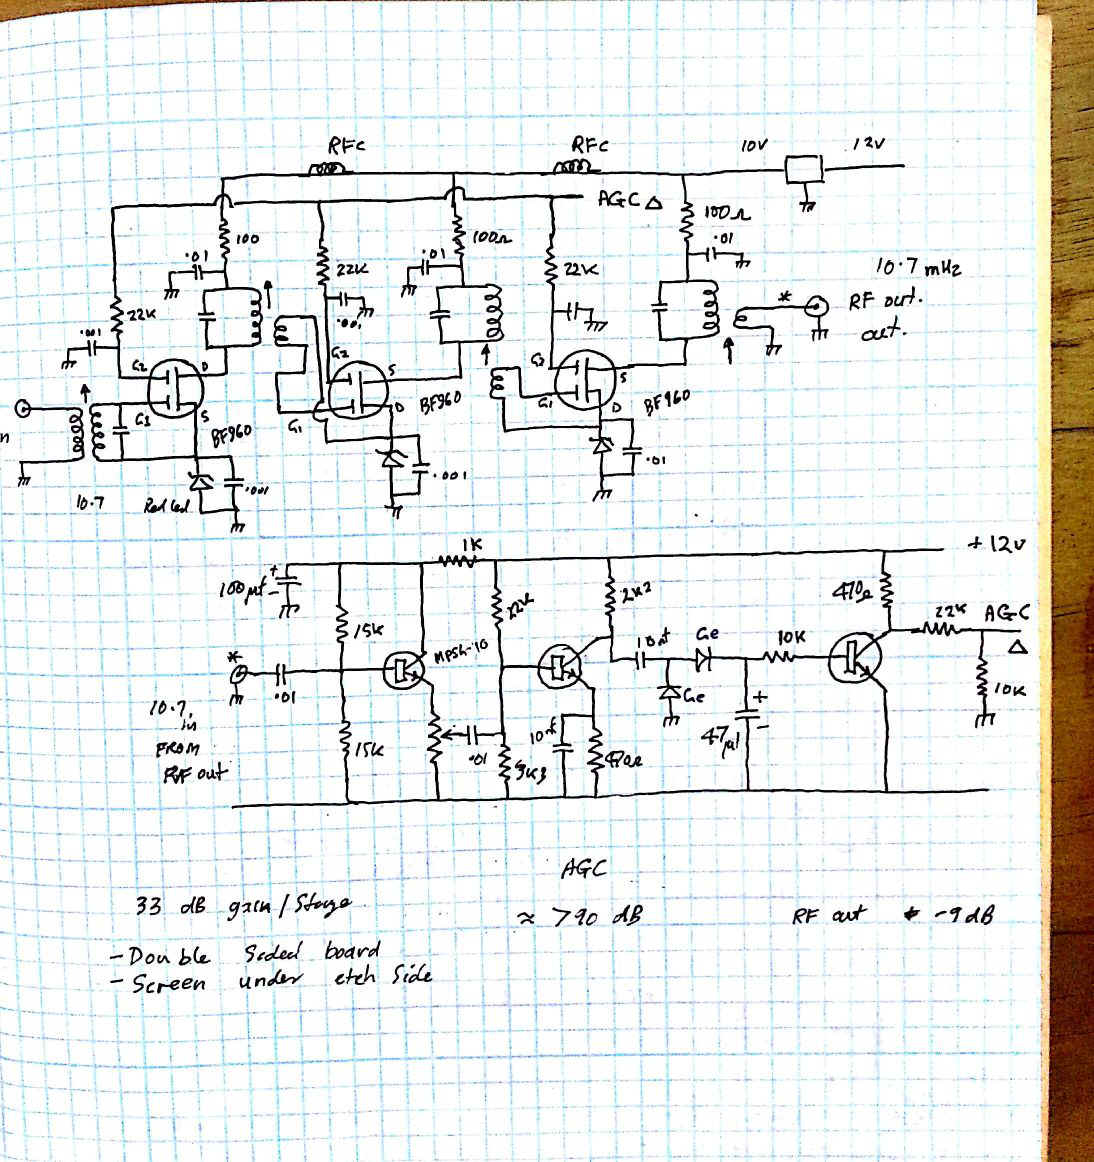 RFc RFc 10V 12V
AGC Δ
100 100Ω 100Ω
.01 .01 .01
22K 22K
22K
10.7 mHz
* RF out.
out.
.001 .001
G2 D G2 S G3 S
G1 S G1 D G1 D
BF960 BF960 BF960
n
.001 .001 .01
10.7 Red Led
1K +12v
100µf + - 22K 2K2 470Ω
15K MPSH-10 10nf Ge 10K 22K AGC
Δ
* .01 Ge 10K
10.7
in
FROM
RF out
15K .01 3K3 10nf 470Ω 47µf + -
AGC
33 dB gain / Stage
≈ >90 dB RF out * -9dB
- Double Sided board
- Screen under etch Side